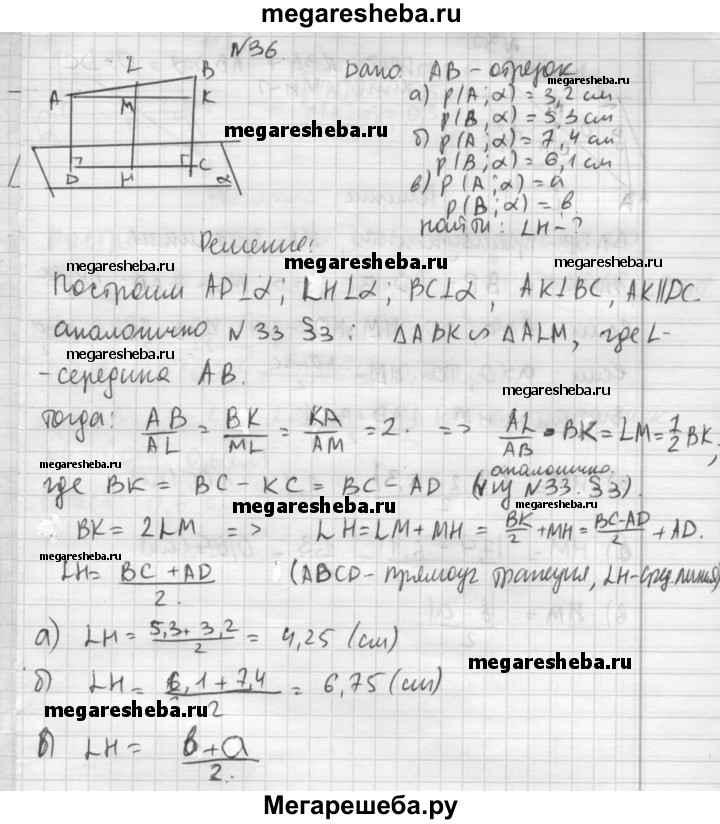 megaresheba.ru
N36
L
B
A
M
K
D
H
C
α
Дано: AB - отрезок
megaresheba.ru
а) ρ(A; α) = 3,2 см
ρ(B; α) = 5,3 см
б) ρ(A; α) = 7,4 см
ρ(B; α) = 6,1 см
в) ρ(A; α) = a
ρ(B; α) = b.
найти: LH - ?
megaresheba.ru
megaresheba.ru
Решение:
megaresheba.ru
megaresheba.ru
megaresheba.ru
Построим AD⊥α; LH⊥α; BC⊥α, AK⊥BC, AK∥DC.
аналогично N33 §3: ΔABK ∽ ΔALM, где L-
megaresheba.ru
-середина AB.
megaresheba.ru
тогда: AB/AL = BK/ML = KA/AM = 2. => AL/AB · BK = LM = 1/2 BK,
megaresheba.ru
аналогично.
где BK = BC - KC = BC - AD (из N33. §3).
BK = 2LM => LH = LM + MH = BK/2 + MH = BC-AD/2 + AD.
LH = BC + AD/2. (ABCD - прямоуг трапеция, LH - сред линия)
а) LH = 5,3+3,2/2 = 4,25 (см)
megaresheba.ru
б) LH = 6,1+7,4/2 = 6,75 (см)
megaresheba.ru
в) LH = b+a/2.
Мегарешеба.ру